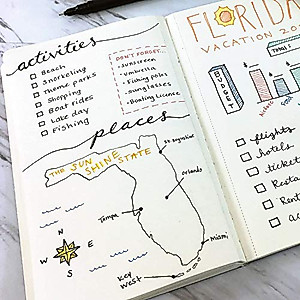 activities
Beach
Snorkeling
Theme parks
Shopping
Boat rides
Lake day
Fishing
DON'T FORGET...
-sunscreen
-umbrella
-Fishing poles
-sunglasses
-Boating License
places
THE SUN
SHINE
STATE
St. Augustine
Orlando
Tampa
Miami
Key
west
N
W
E
S
FLORIDA
VACATION 20
BUDGET
flights
hotels
ticket
Resta
Rent